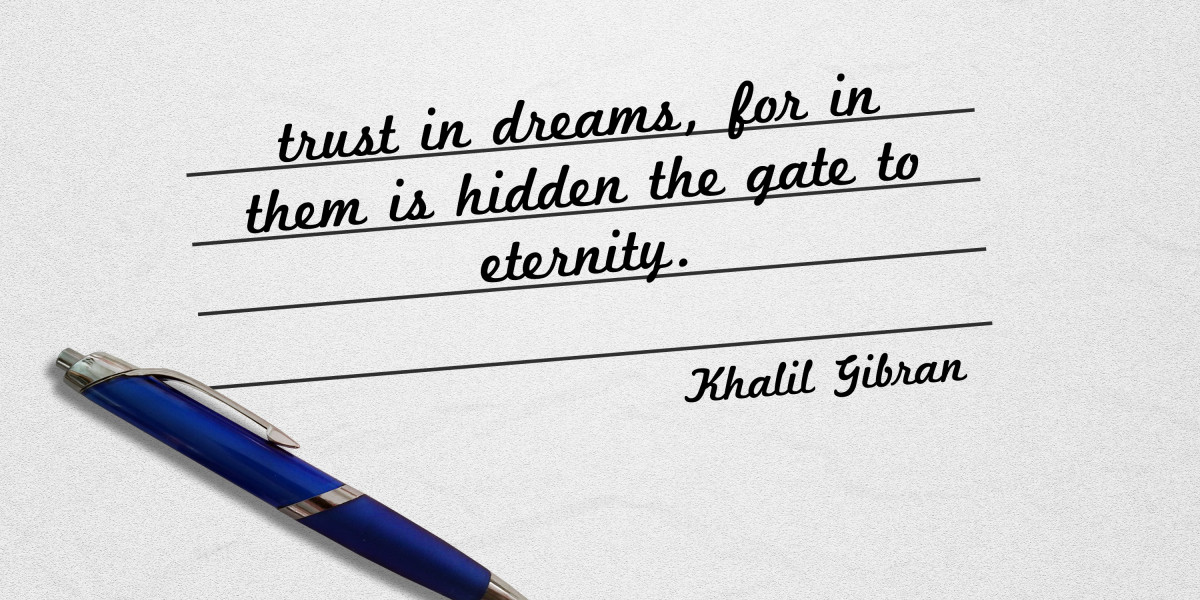 trust in dreams, for in
them is hidden the gate to
eternity.
Khalil Gibran